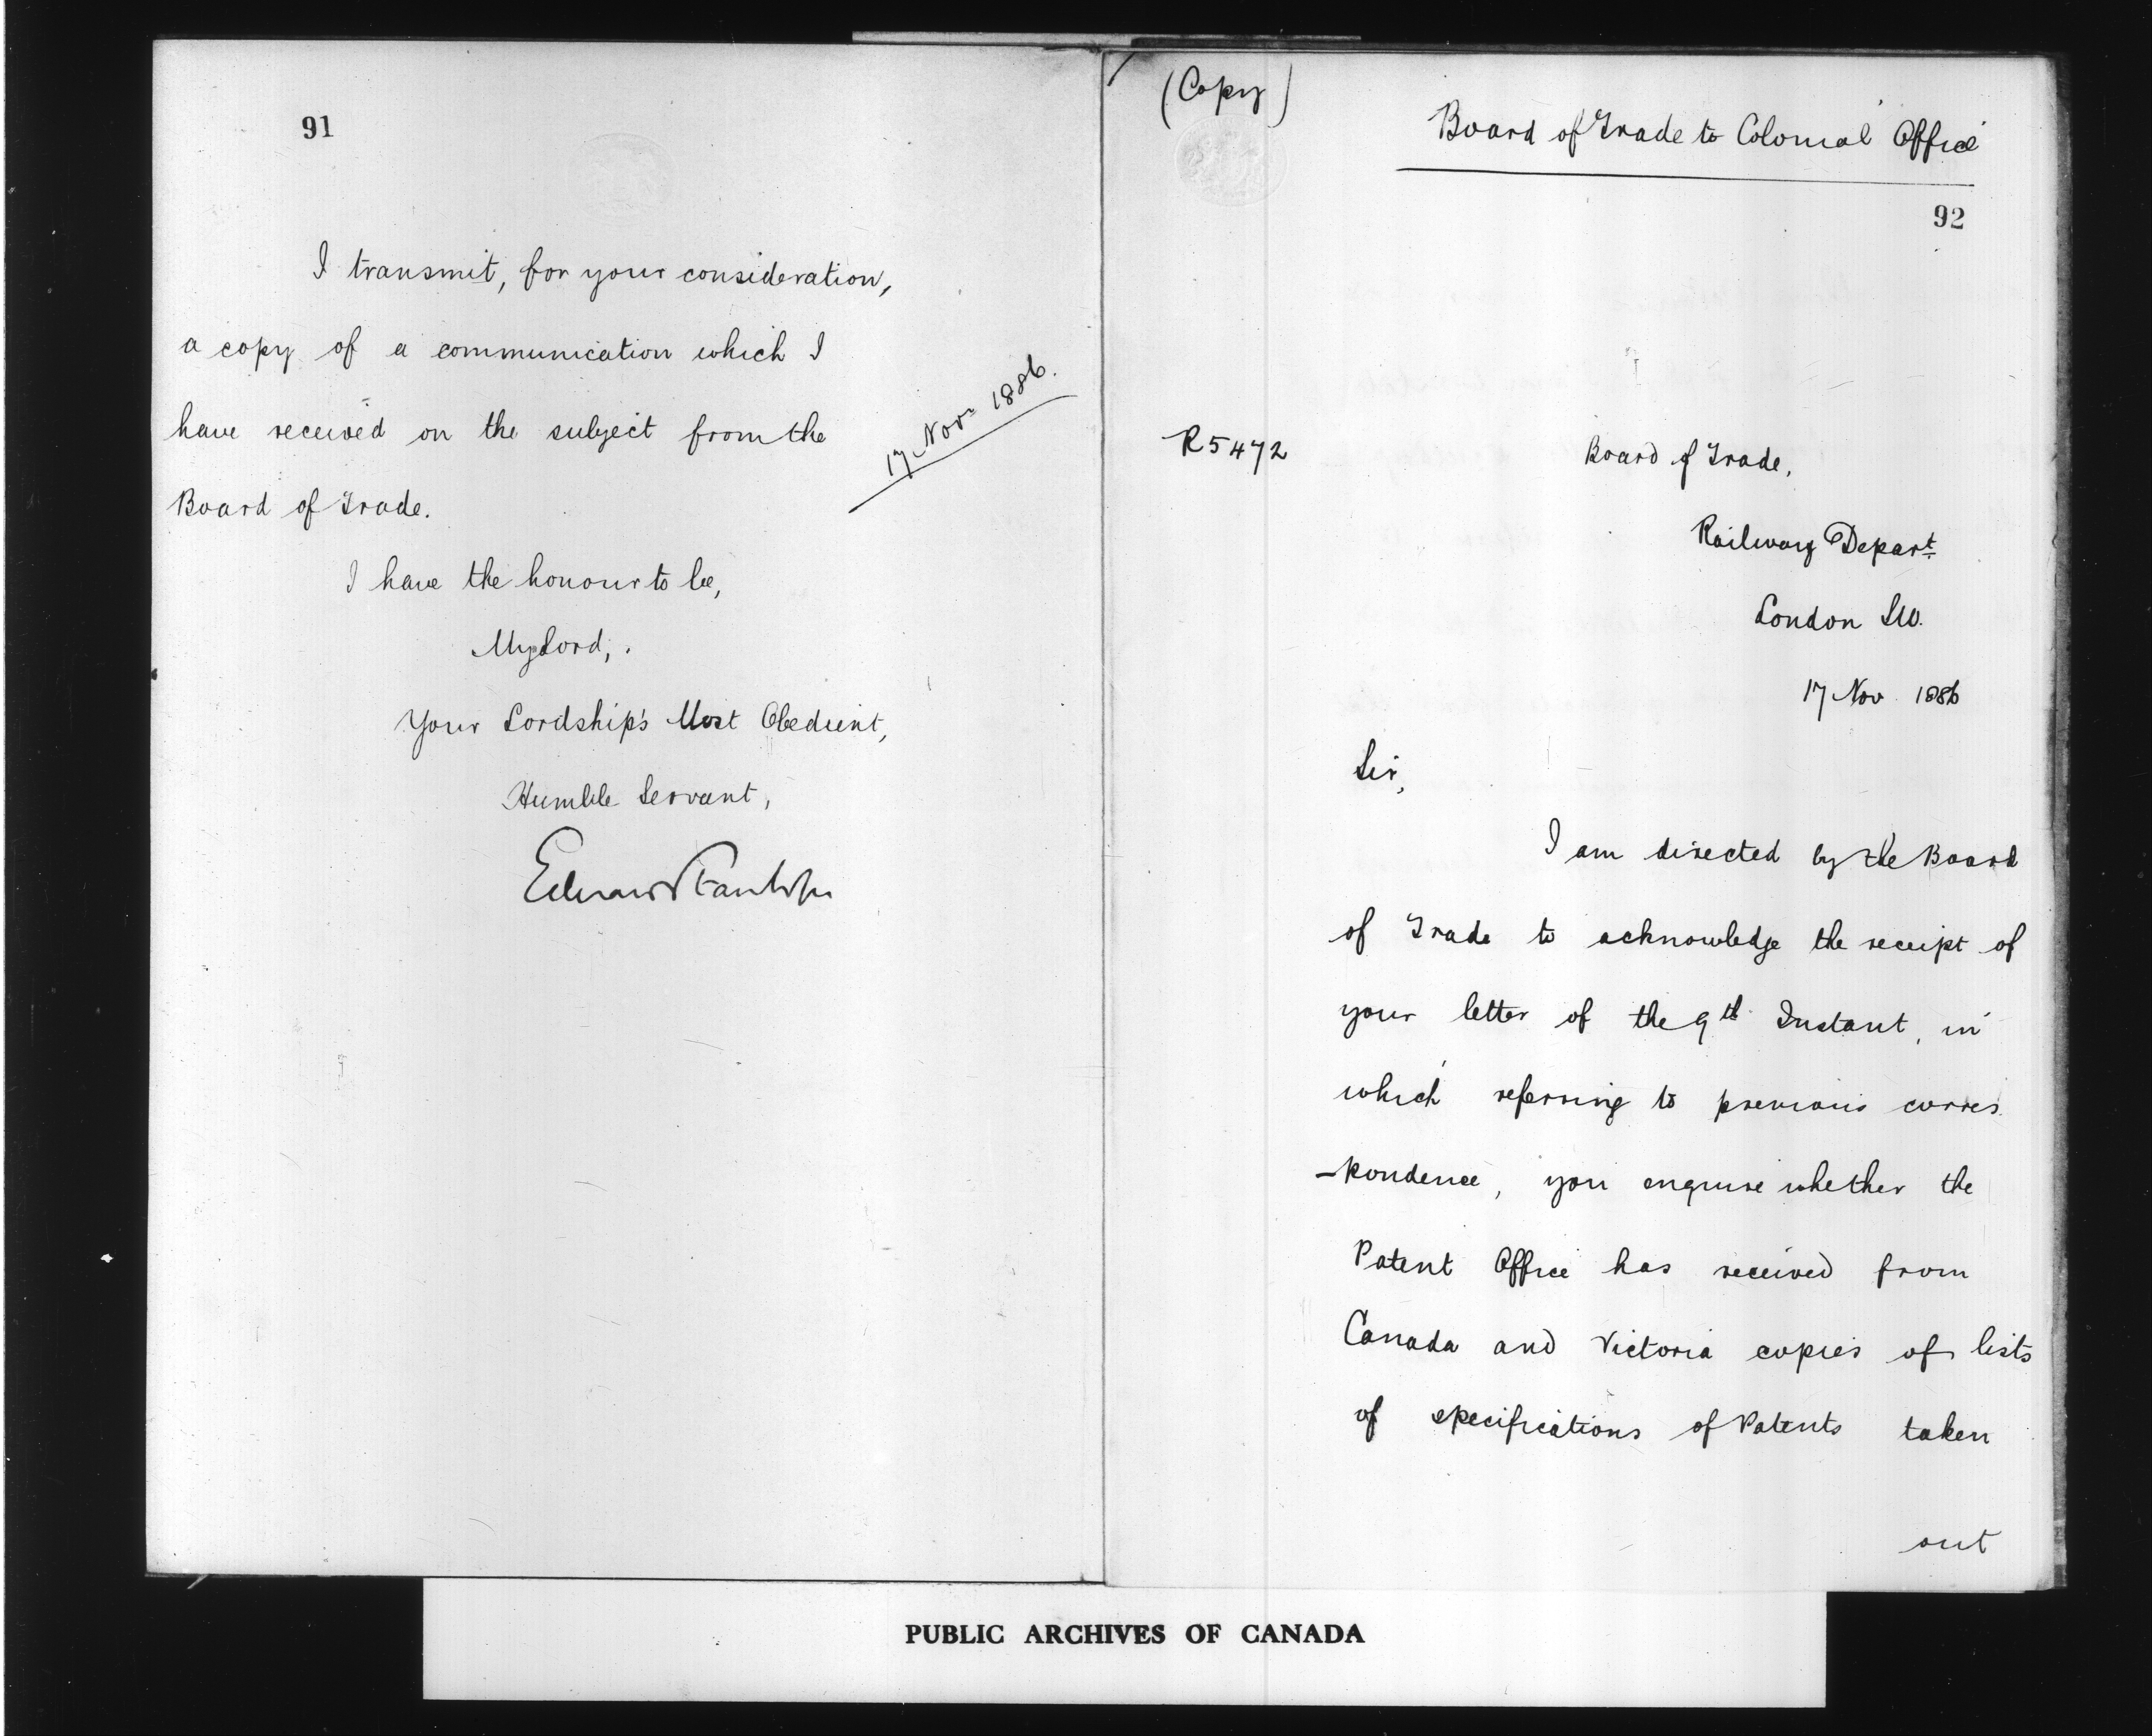 91
I transmit, for your consideration,
a copy of a communication which I
have received on the subject from the
Board of Trade.
17 Novr 1886.
I have the honour to be,
My Lord,
Your Lordship's Most Obedient,
Humble Servant,
Edward Stanhope
(Copy)
Board of Trade to Colonial Office
92
R5472
Board of Trade,
Railway Depart.
London SW.
17 Nov 1886
Sir,
I am directed by the Board
of Trade to acknowledge the receipt of
your letter of the 9th Instant, in
which referring to previous corres
-pondence, you enquire whether the
Patent Office has received from
Canada and Victoria copies of lists
of specifications of Patents taken
out
PUBLIC ARCHIVES OF CANADA